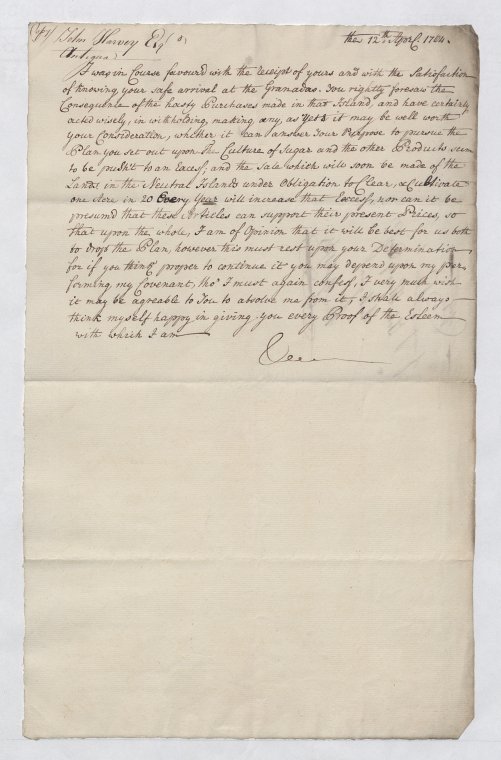 John Harvey Esqr the 12th April 1764.
Antigua
I was in Course favourd with the receipt of yours and with the Satisfaction
of knowing your safe arrival at the Granadas. You rightly foresaw the
Consequence of the hasty Purchases made in that Island, and have certainly
acted wisely, in withholding making any, as yet & it may be well worth
your Consideration, whether it can answer Your Purpose to pursue the
Plan you set out upon The Culture of Sugar and the other Products seem
to be push't to an Excess; and the Sale which will soon be made of the
Lands in the Neutral Islands under Obligation to Clear & Cultivate
one Acre in 20 Every Year will increase that Excess, nor can it be
presumd that these Articles can support their present Prices, so
that upon the whole, I am of Opinion that it will be best for us both
to drop the Plan, however this must rest upon your Determination
for if you think proper to continue it you may depend upon my per
forming my Covenant, tho' I must again confess, I very much wish
it may be agreable to You to absolve me from it; I shall always
think myself happy in giving you every Proof of the Esteem
with which I am